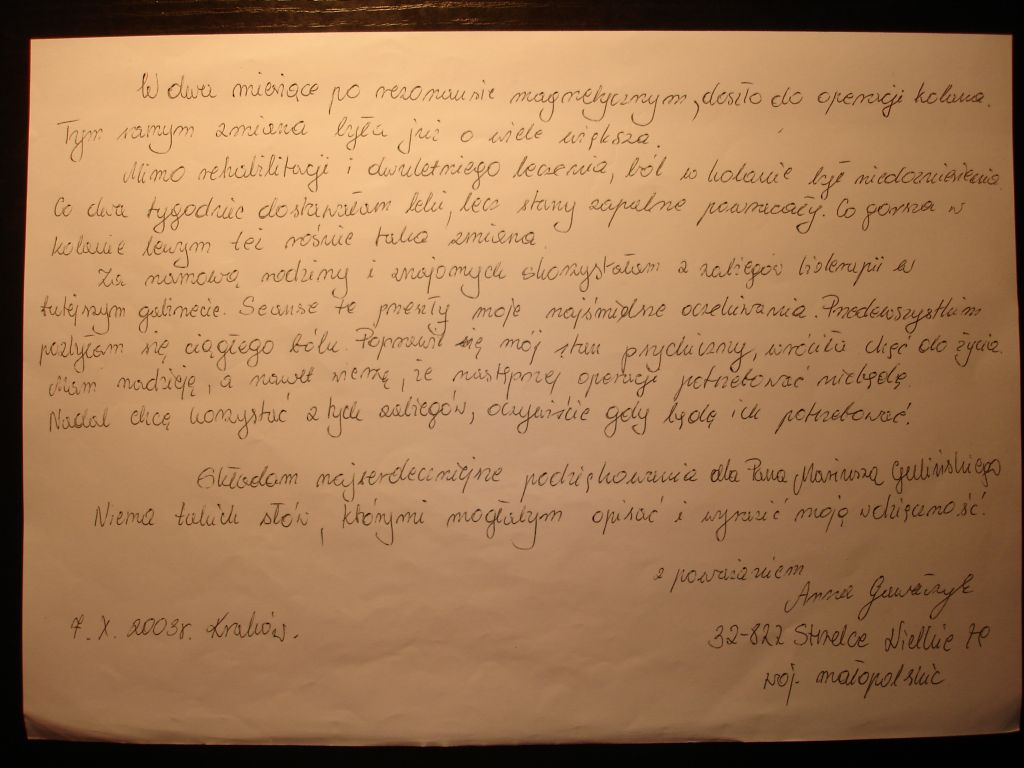 W dwa miesiące po rezonansie magnetycznym, doszło do operacji kolana.
Tym samym zmiana była już o wiele większa.
Mimo rehabilitacji i dwuletniego leczenia, ból w kolanie był niedozniesienia.
Co dwa tygodnie dostawałam leki, lecz stany zapalne powracały. Co gorsza w
kolanie lewym też rośnie taka zmiana.
Za namową rodziny i znajomych skorzystałam z zabiegów bioterapii w
tutejszym gabinecie. Seanse te przeszły moje najśmielsze oczekiwania. Przedewszystkim
pozbyłam się ciągłego bólu. Poprawił się mój stan psychiczny, wróciła chęć do życia.
Mam nadzieję, a nawet wierzę, że następnej operacji potrzebować niebędę.
Nadal chcę korzystać z tych zabiegów, oczywiście gdy będę ich potrzebować.
Składam najserdeczniejsze podziękowania dla Pana Mariusza
Niema takich słów, którymi mogłabym opisać i wyrazić moją wdzięczność.
z poważaniem
Anna Gawełczyk
7. X. 2003r. Kraków.
32-822 Strzelce Wielkie
woj. małopolskie